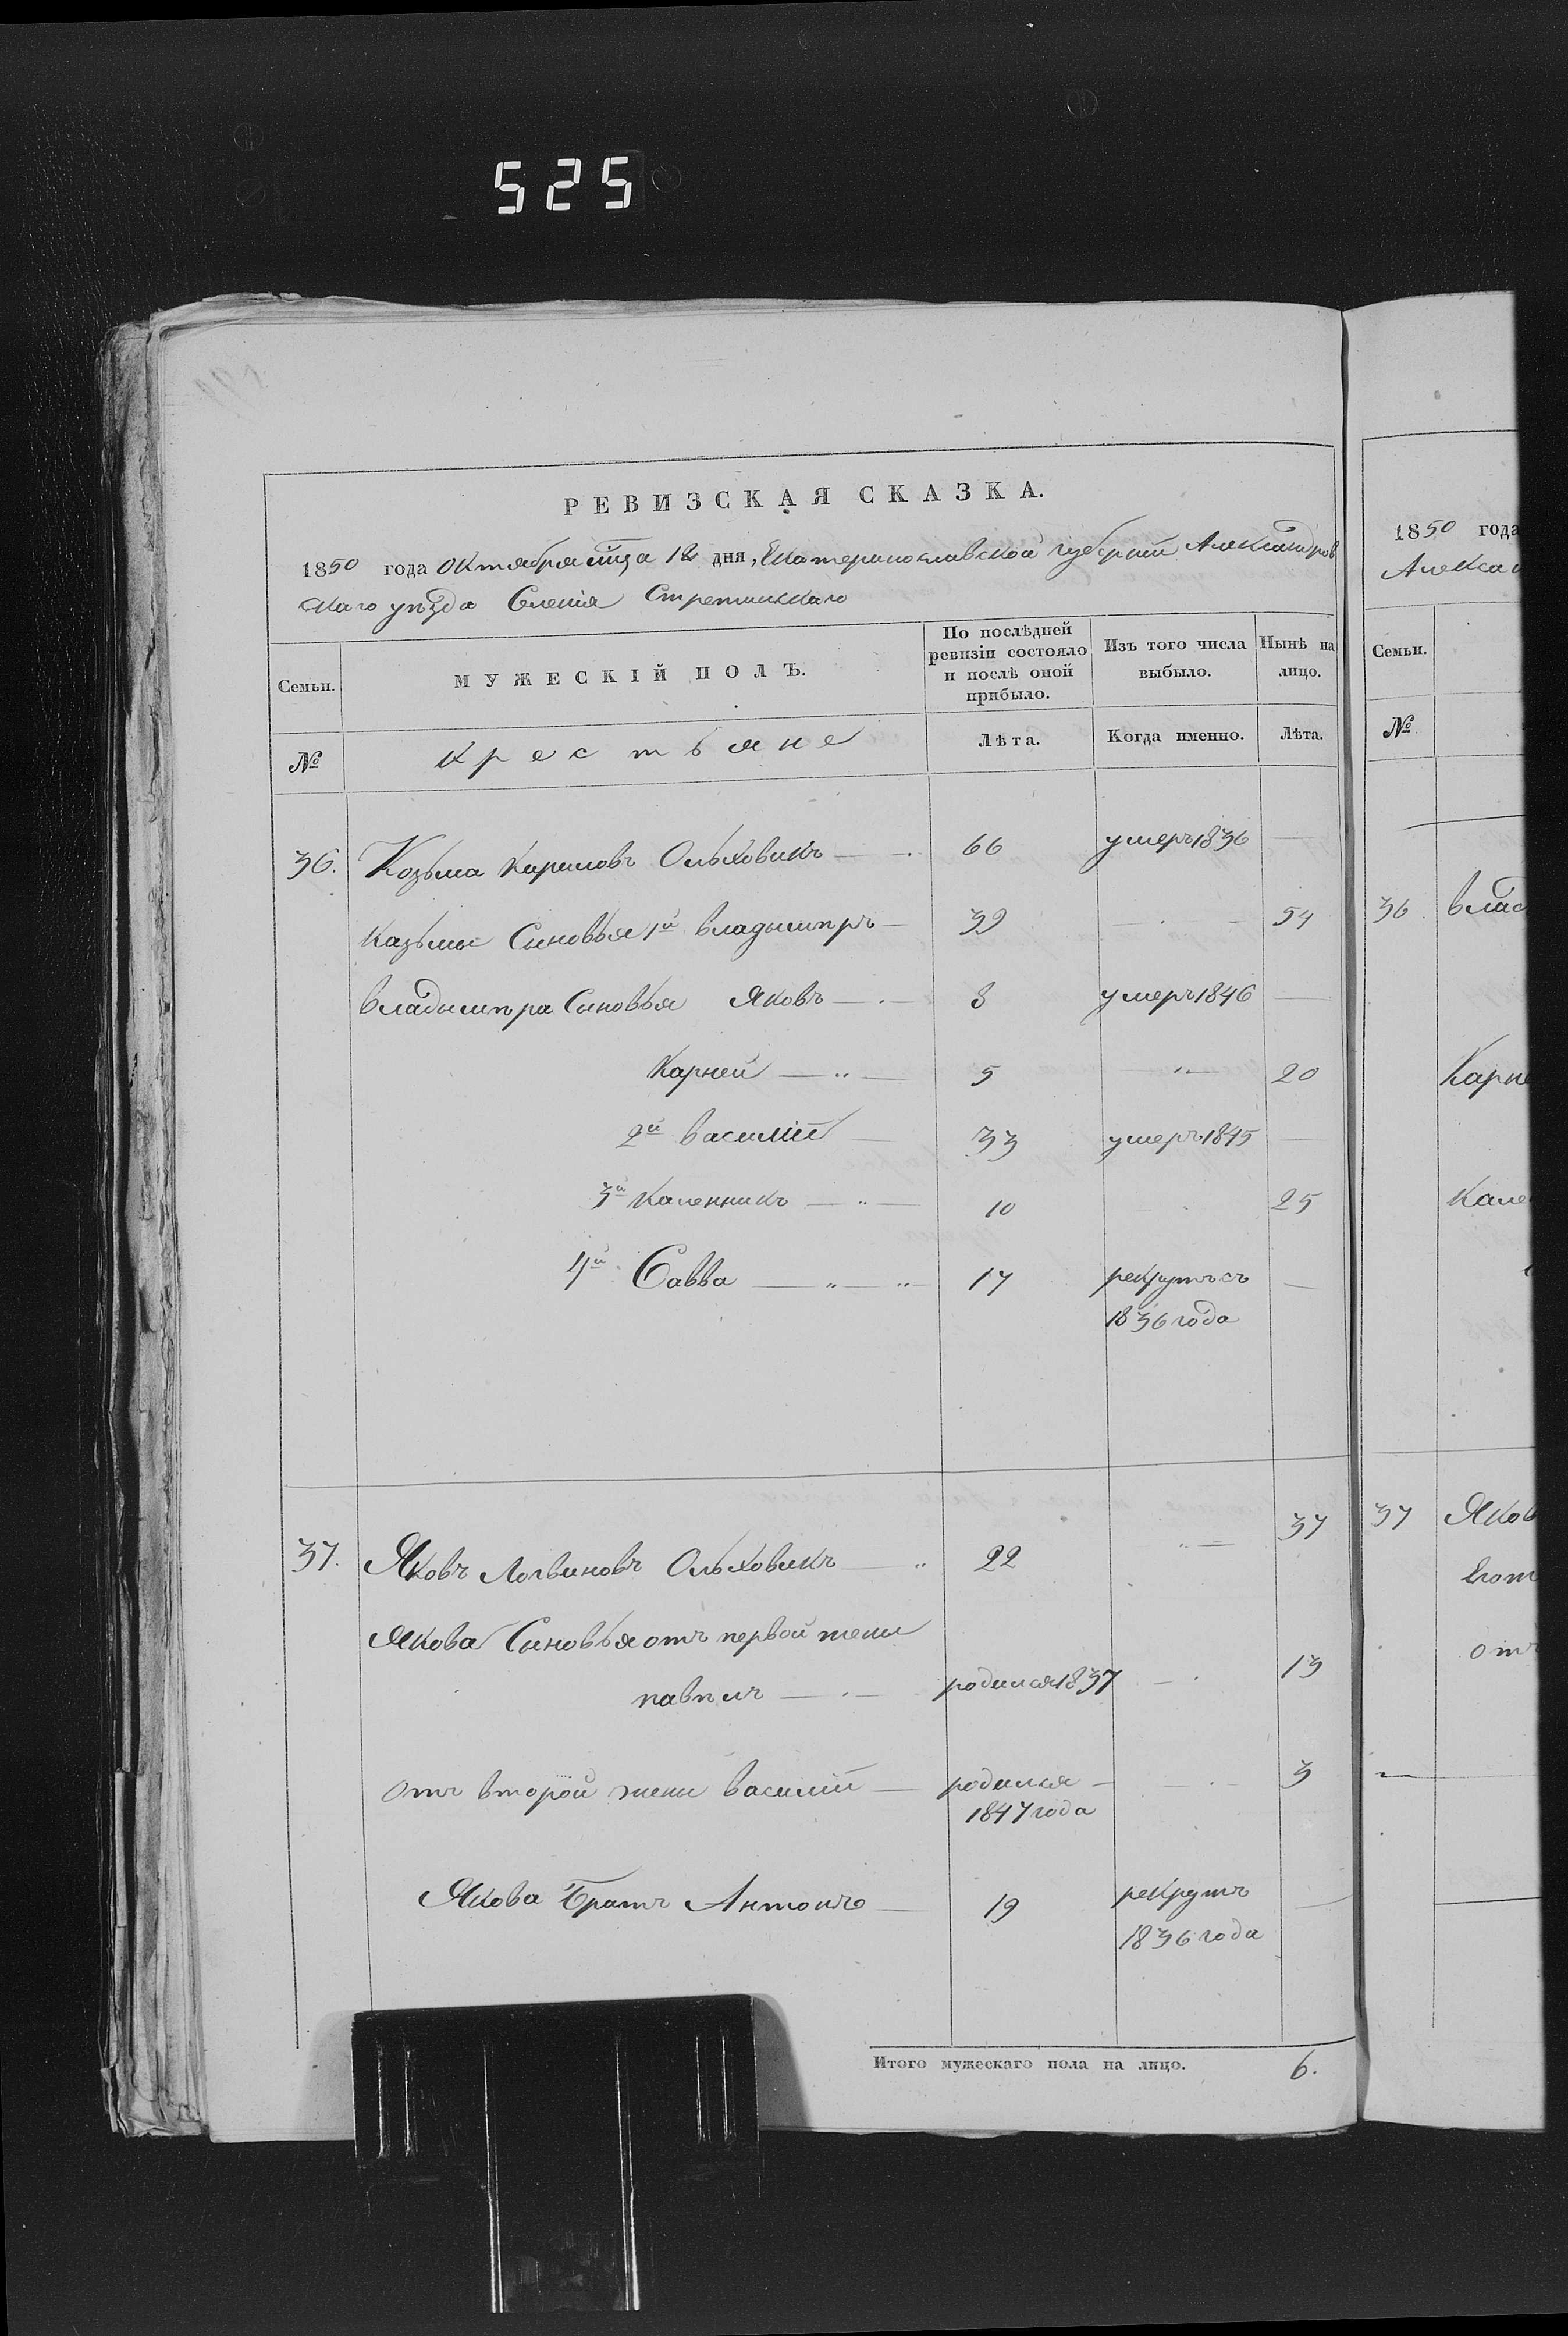 525
РЕВИЗСКАЯ СКАЗКА.
1850 года Октября мца 12 дня, Екатеринославской губерніи Александров
скаго уѣзда Селенія Стретинскаго
Семьи.
МУЖЕСКІЙ ПОЛЪ.
По послѣдней ревизіи состояло и послѣ оной прибыло.
Изъ того числа выбыло.
Нынѣ на лицо.
№
Крестьяне
Лѣта.
Когда именно.
Лѣта.
36. Козьма Кириловъ Ольховикъ — 66 умеръ 1836 —
Казьмы Синовья 1й владымиръ — 39 — 54
владымира Синовья Яковъ — 8 умеръ 1846
Карней — 5 " 20
2й василій — 33 умеръ 1845 —
3й Каленникъ — 10 25
4й Савва — 17 рекрутъ съ —
1836 года
37. Яковъ Логвиновъ Ольховикъ — 22 37
Якова Синовья отъ первой жены
павелъ — родился 1837 — 13
отъ второй жены василій — родился — 3
1847 года
Якова Братъ Антонъ — 19 рекрутъ —
1836 года
Итого мужескаго пола на лицо. 6.
1850 года
Алекса
Семьи.
№
36 влад
Карне
Кале
37 Яков
Его
от